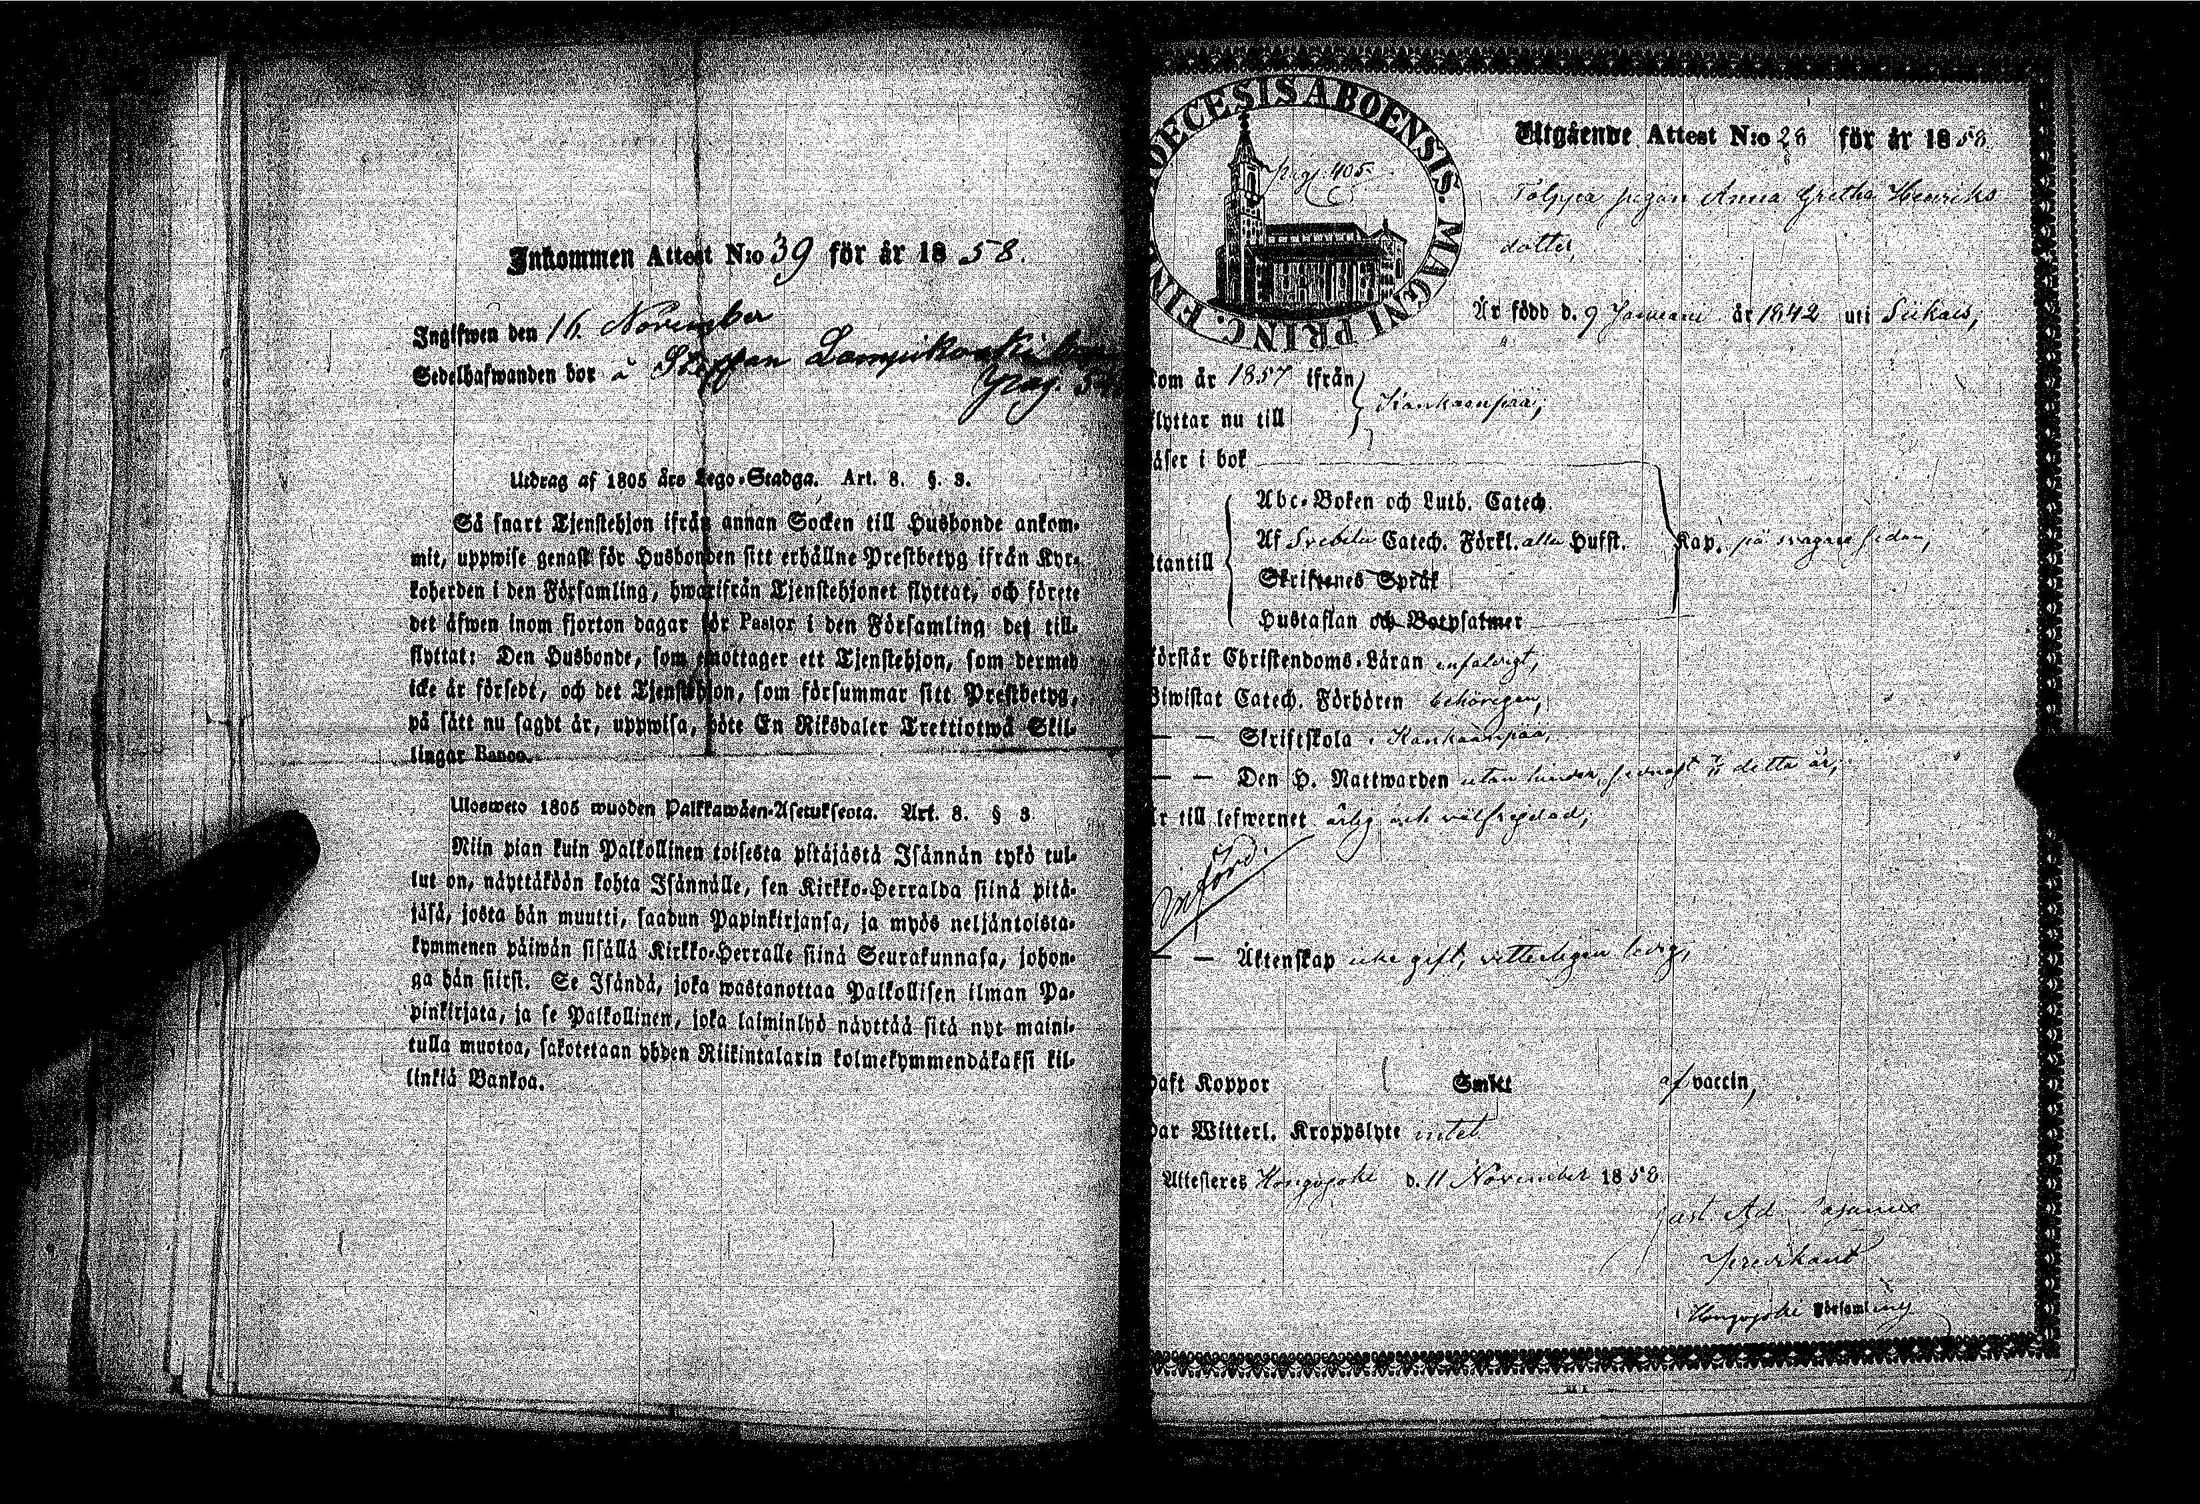 Inkommen Attest N:o 39 för år 1858.
Ingifwen den 16 November
Sedelhafwanden bor å Steffan Lampikoski
pag. 5
Utdrag af 1805 års Lego-Stadga. Art. 8. §. 3.
Så snart Tjenstehjon ifrån annan Socken till Husbonde ankom-
mit, uppwise genast för Husbonden sitt erhållne Prestbetyg ifrån Kyr-
koherden i den Församling, hwarifrån Tjenstehjonet flyttat, och förete
det äfwen inom fjorton dagar för Pastor i den Församling det till-
flyttat: Den Husbonde, som emottager ett Tjenstehjon, som dermed
icke är försedt, och det Tjenstehjon, som försummar sitt Prestbetyg,
på sätt nu sagdt är, uppwisa, böte En Riksdaler Trettiotwå Skil-
lingar Banco.
Ulosweto 1805 wuoden Palkkawäen-Asetuksesta. Art. 8. § 3
Niin pian kuin Palkollinen toisesta pitäjästä Isännän tykö tul-
lut on, näyttäköön kohta Isännälle, sen Kirkko-Herralda siinä pitä-
jäsä, josta hän muutti, saadun Papinkirjansa, ja myös neljäntoista-
kymmenen päiwän sisällä Kirkko-Herralle siinä Seurakunnasa, johon-
ga hän siirst. Se Isändä, joka wastanottaa Palkollisen ilman Pa-
pinkirjata, ja se Palkollinen, joka laiminlyö näyttää sitä nyt maini-
tulla muotoa, sakotetaan yhden Riikintalarin kolmekymmendäkaksi kil-
linkiä Bankoa.
OECESIS ABOENSIS. MAGNI PRINC. FIN
pag. 405
Utgående Attest N:o 28 för år 1858
pigan Anna Gretha Henriks
dotter,
Är född d. 9 Januarii år 1842 uti Siikais,
kom år 1857 ifrån
flyttar nu till
Kankaanpää;
äser i bok
Abc-Boken och Luth. Catech.
Af Svebilii Catech. Förkl. alla Hufst.
Kap. på svagare sidan,
tantill
Skriftenes Språk
Hustaflan och Botpsalmer
örstår Christendoms-Läran enfaldigt,
Biwistat Catech. Förhören behörigen,
— — Skriftskola i Kankaanpää,
— — Den H. Nattwarden utan hinder, senast detta år,
är till lefwernet ärlig och välfrejdad,
införd.
— — Äktenskap icke gift, vetterligen ledig,
haft Koppor
Smitt
af vaccin,
har Witterl. Kroppslyte intet
Attesteres Hongojoki d. 11 November 1858.
Gust. Ad.
Predikant
i Hongojoki Församling